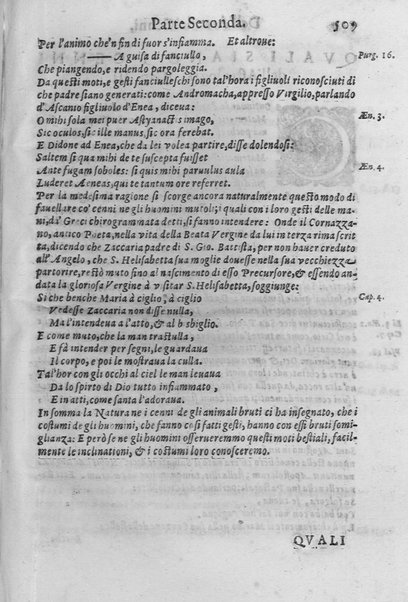 Parte Seconda. 509
Per l'animo che'n fin di fuor s'infiamma. Et altroue:
—— A guisa di fanciullo, Purg. 16.
Che piangendo, e ridendo pargoleggia.
Da questi moti, e gesti fanciulleschi son tal'hora i figliuoli riconosciuti di
che padre siano generati: come Andromacha, appresso Virgilio, parlando
d'Ascanio figliuolo d'Enea, diceua:
O mihi sola mei puer Astyanacti s imago, Æn. 3.
Sic oculos, sic ille manus, sic ora ferebat.
E Didone ad Enea, che da lei volea partire, disse dolendosi:
Saltem si qua mihi de te suscepta fuisset
Ante fugam soboles: si quis mihi paruulus aula Æn. 4.
Luderet Aeneas, qui te tantum ore referret.
Per la medesima ragione si scorge ancora naturalmente questo modo di
fauellare co' cenni ne gli huomini mutoli; quali con i lor gesti delle ma-
ni, da' Greci chirogrammata detti, si fanno intendere: Onde il Cornazza-
no, antico Poeta, nella vita della Beata Vergine da lui in terza rima scrit-
ta, dicendo che Zaccaria padre di S. Gio. Battista, per non hauer creduto
all'Angelo, che S. Helisabetta sua moglie douesse nella sua vecchiezza
partorire, restò muto fino al nascimento di esso Precursore, & essendo an-
data la gloriosa Vergine à visitar S. Helisabetta, soggiunge:
Si che benche Maria à ciglio, à ciglio Cap. 4.
Vedesse Zaccaria non disse nulla,
Ma l'intendeua a l'atto, & al bisbiglio.
E come muto, che la man trastulla,
E fà intender per segni, le guardaua
Il corpo, e poi le mostraua la culla.
Tal'hor con gli occhi al ciel le man leuaua
Da lo spirto di Dio tutto infiammato,
E in atti, come santa l'adoraua.
In somma la Natura ne i cenni de gli animali bruti ci ha insegnato, che i
costumi de gli huomini, che fanno cosi fatti gesti, hanno con essi bruti somi-
glianza: E però se ne gli huomini osserueremo questi moti bestiali, facil-
mente le inclinationi, & i costumi loro conosceremo.
QVALI